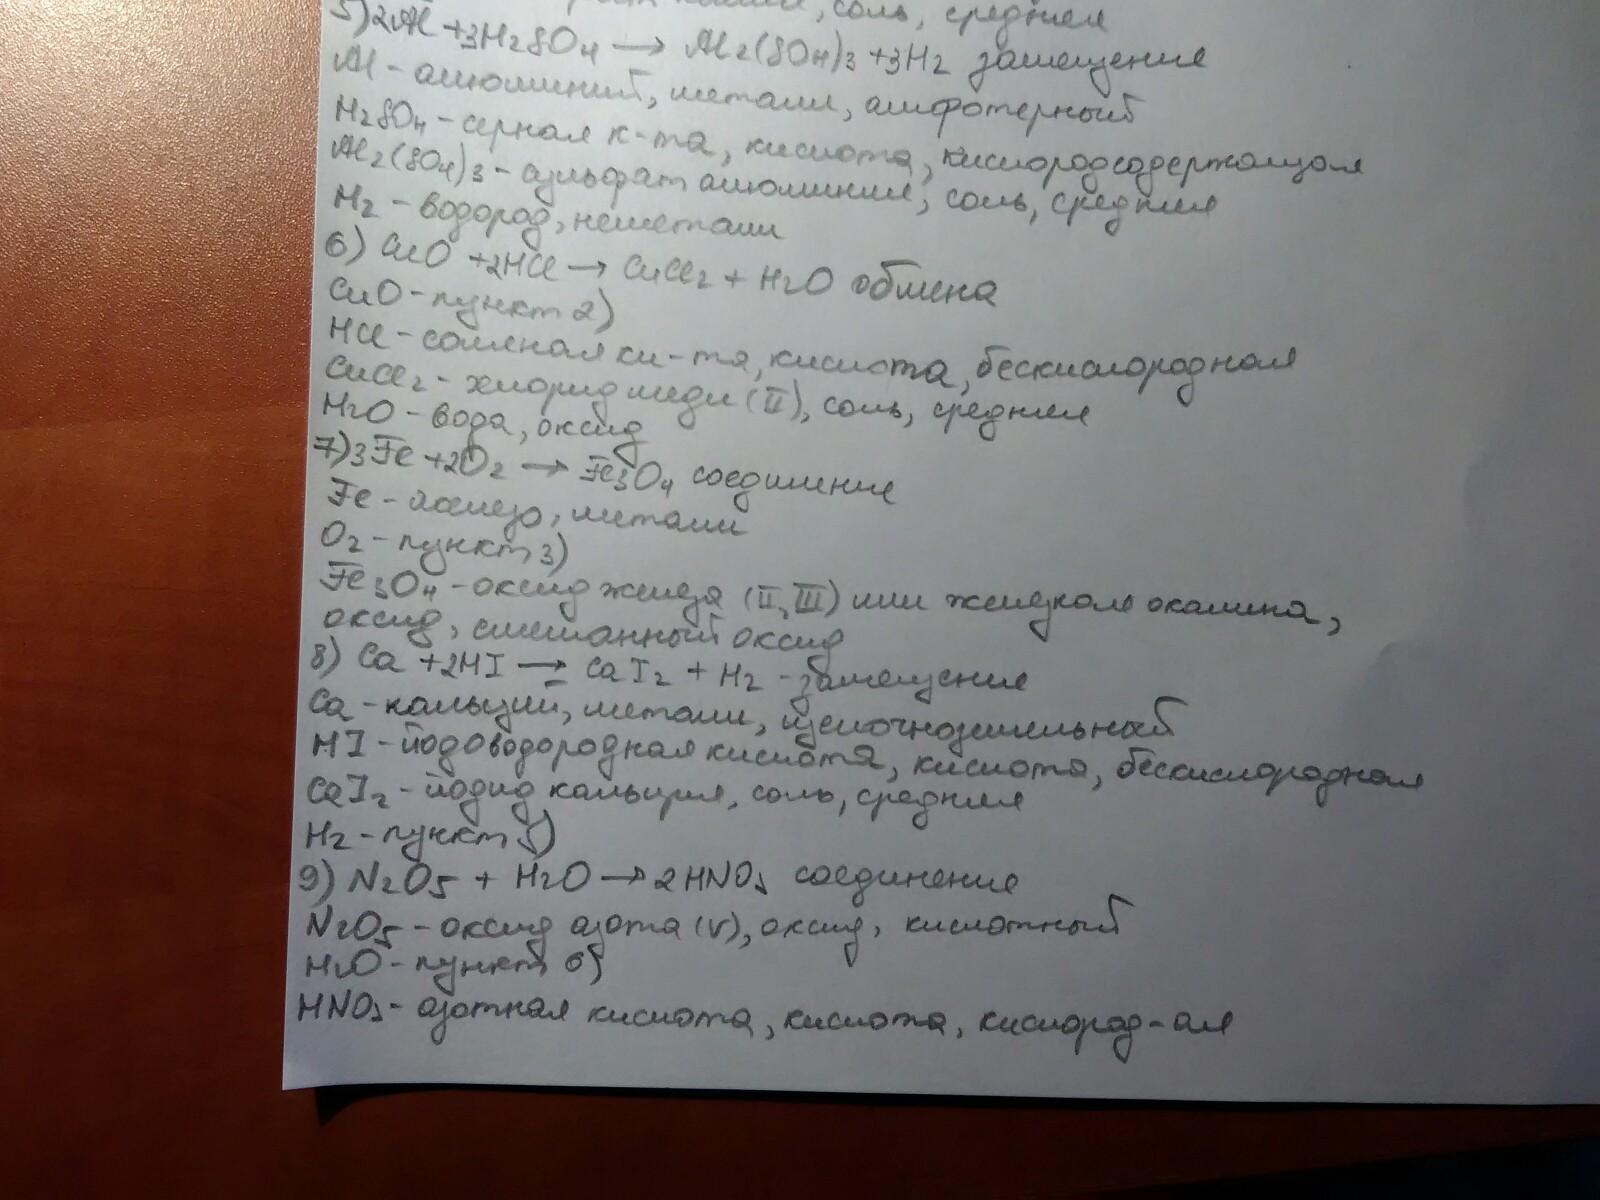 соль, средняя
5) 2Al + 3H2SO4 → Al2(SO4)3 + 3H2 замещение
Al - алюминий, металл, амфотерный
H2SO4 - серная к-та, кислота, кислородсодержащая
Al2(SO4)3 - сульфат алюминия, соль, средняя
H2 - водород, неметалл
6) CuO + 2HCl → CuCl2 + H2O обмена
CuO - пункт 2)
HCl - соляная ки-та, кислота, бескислородная
CuCl2 - хлорид меди (II), соль, средняя
H2O - вода, оксид
7) 3Fe + 2O2 → Fe3O4 соединение
Fe - железо, металл
O2 - пункт 3)
Fe3O4 - оксид железа (II, III) или железная окалина,
оксид, смешанный оксид
8) Ca + 2HI → CaI2 + H2 - замещение
Ca - кальций, металл, щелочноземельный
HI - йодоводородная кислота, кислота, бескислородная
CaI2 - йодид кальция, соль, средняя
H2 - пункт 5)
9) N2O5 + H2O → 2HNO3 соединение
N2O5 - оксид азота (V), оксид, кислотный
H2O - пункт 6)
HNO3 - азотная кислота, кислота, кислород-ая